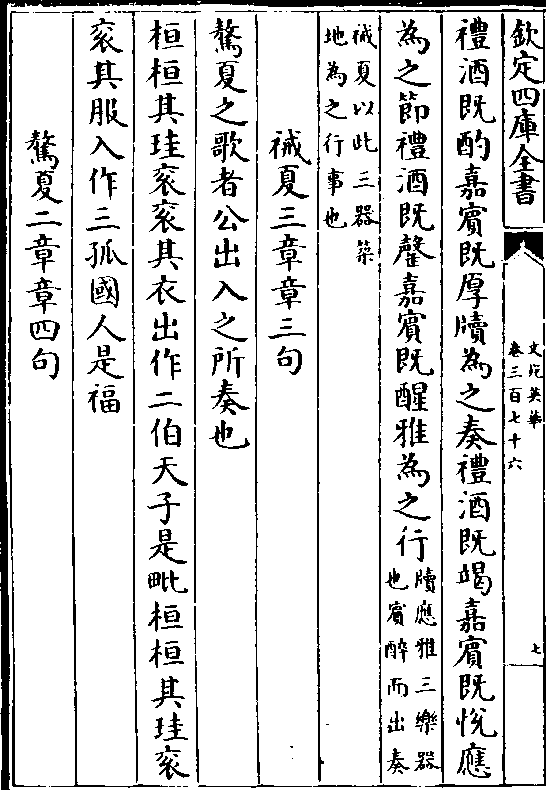 欽定四庫全書
文苑英華
卷三百七十六
七
禮酒既酌嘉賓既厚牘為之奏禮酒既竭嘉賓既悅應
為之節禮酒既罄嘉賓既醒雅為之行
牘應雅三樂器
也賓醉而出奏
祴夏以此三器築
地為之行事也
祴夏三章章三句
驁夏之歌者公出入之所奏也
桓桓其珪衮衮其衣出作二伯天子是毗桓桓其珪衮
衮其服入作三孤國人是福
驁夏二章章四句